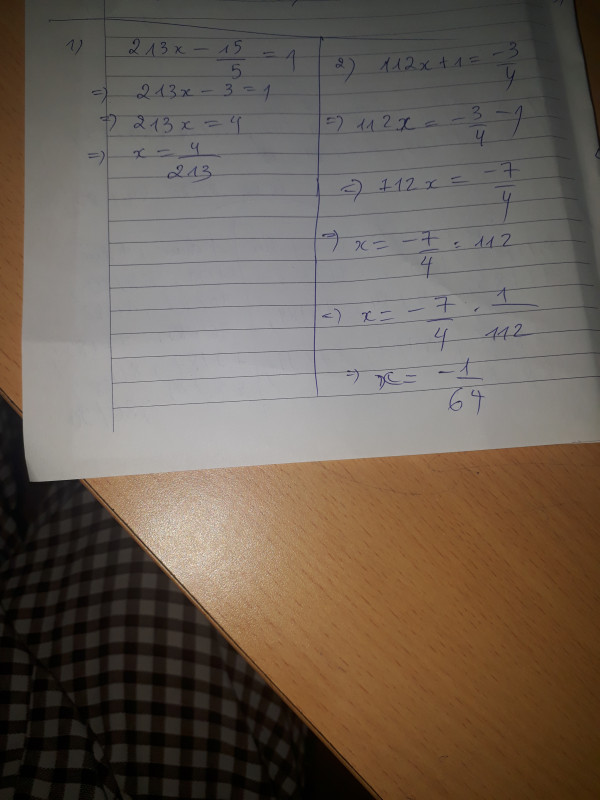 1) 213x - 15/5 = 1
=) 213x - 3 = 1
=) 213x = 4
=) x = 4/213
2) 112x + 1 = -3/4
=) 112x = -3/4 - 1
=) 112x = -7/4
=) x = -7/4 : 112
=) x = -7/4 . 1/112
=) x = -1/64